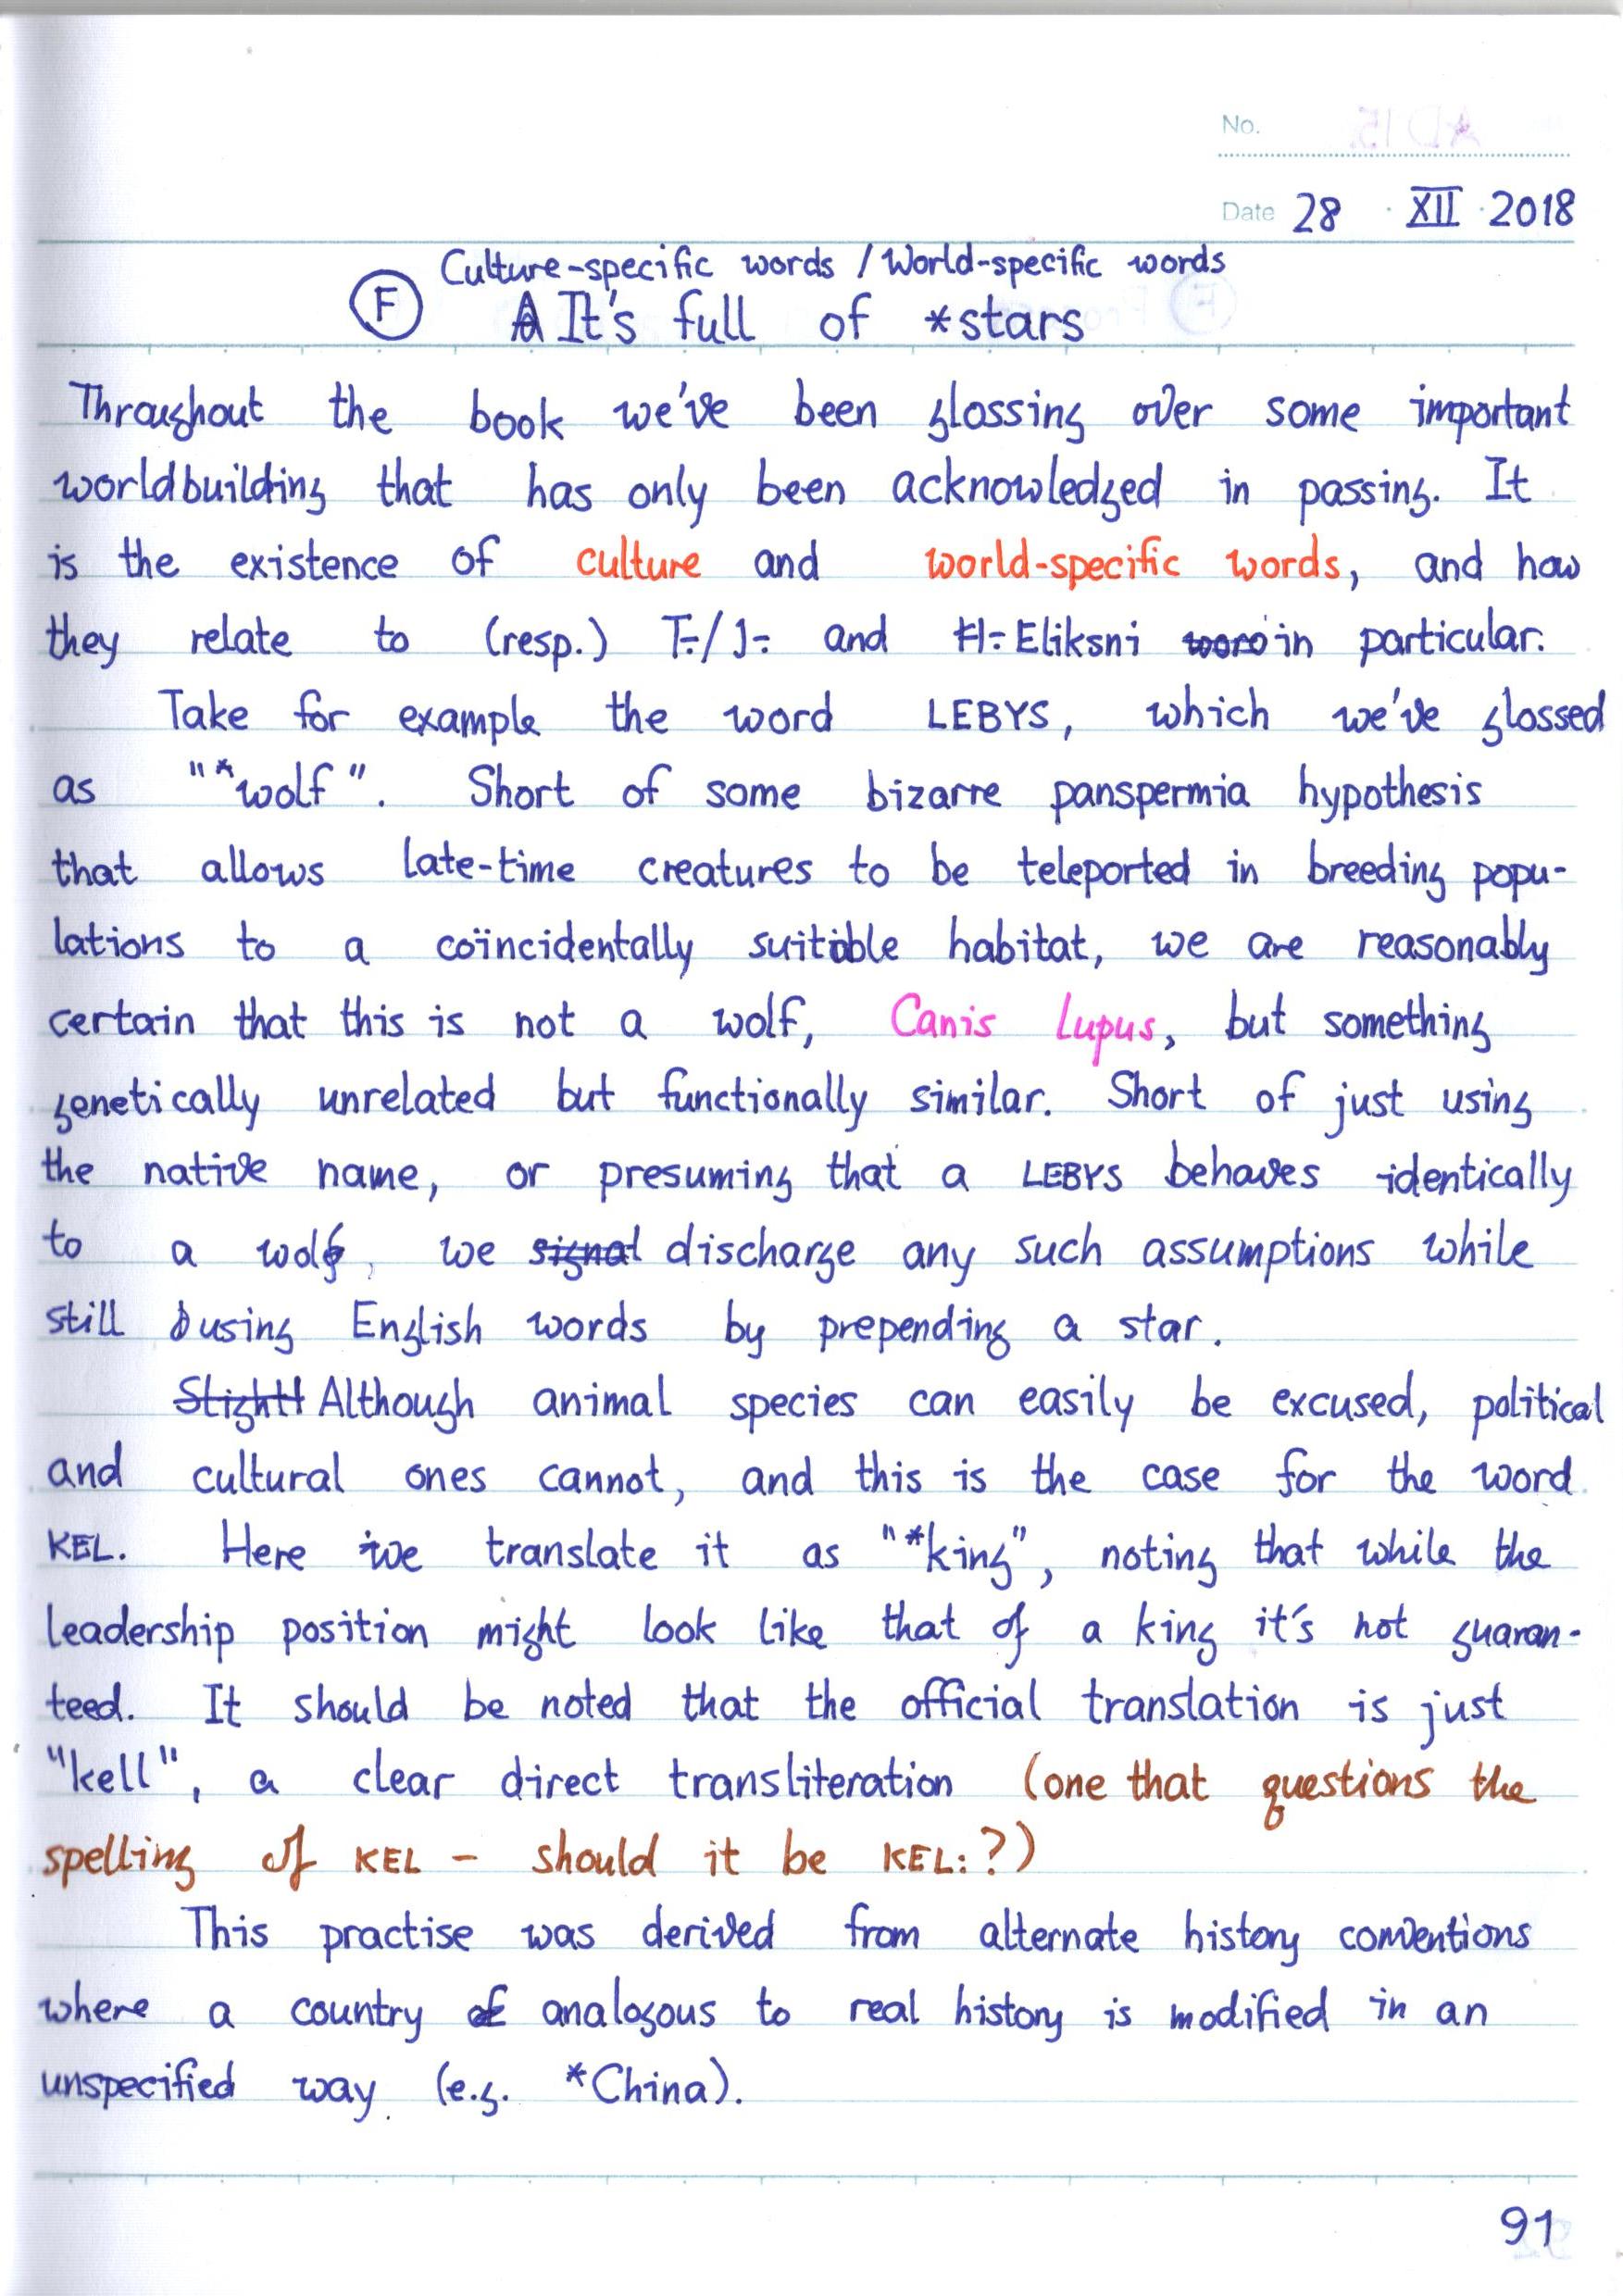 No.
Date 28 · XII · 2018
Culture-specific words / World-specific words
F It's full of *stars
Throughout the book we've been glossing over some important
worldbuilding that has only been acknowledged in passing. It
is the existence of culture and world-specific words, and how
they relate to (resp.) T÷/J÷ and H÷Eliksni in particular.
Take for example the word LEBYS, which we've glossed
as "*wolf". Short of some bizarre panspermia hypothesis
that allows late-time creatures to be teleported in breeding popu-
lations to a coïncidentally suitable habitat, we are reasonably
certain that this is not a wolf, Canis Lupus, but something
genetically unrelated but functionally similar. Short of just using
the native name, or presuming that a LEBYS behaves identically
to a wolf, we signal discharge any such assumptions while
still using English words by prepending a star.
Although animal species can easily be excused, political
and cultural ones cannot, and this is the case for the word
KEL. Here we translate it as "*king", noting that while the
leadership position might look like that of a king it's not guaran-
teed. It should be noted that the official translation is just
"kell", a clear direct transliteration (one that questions the
spelling of KEL - should it be KEL:?)
This practise was derived from alternate history conventions
where a country analogous to real history is modified in an
unspecified way (e.g. *China).
91